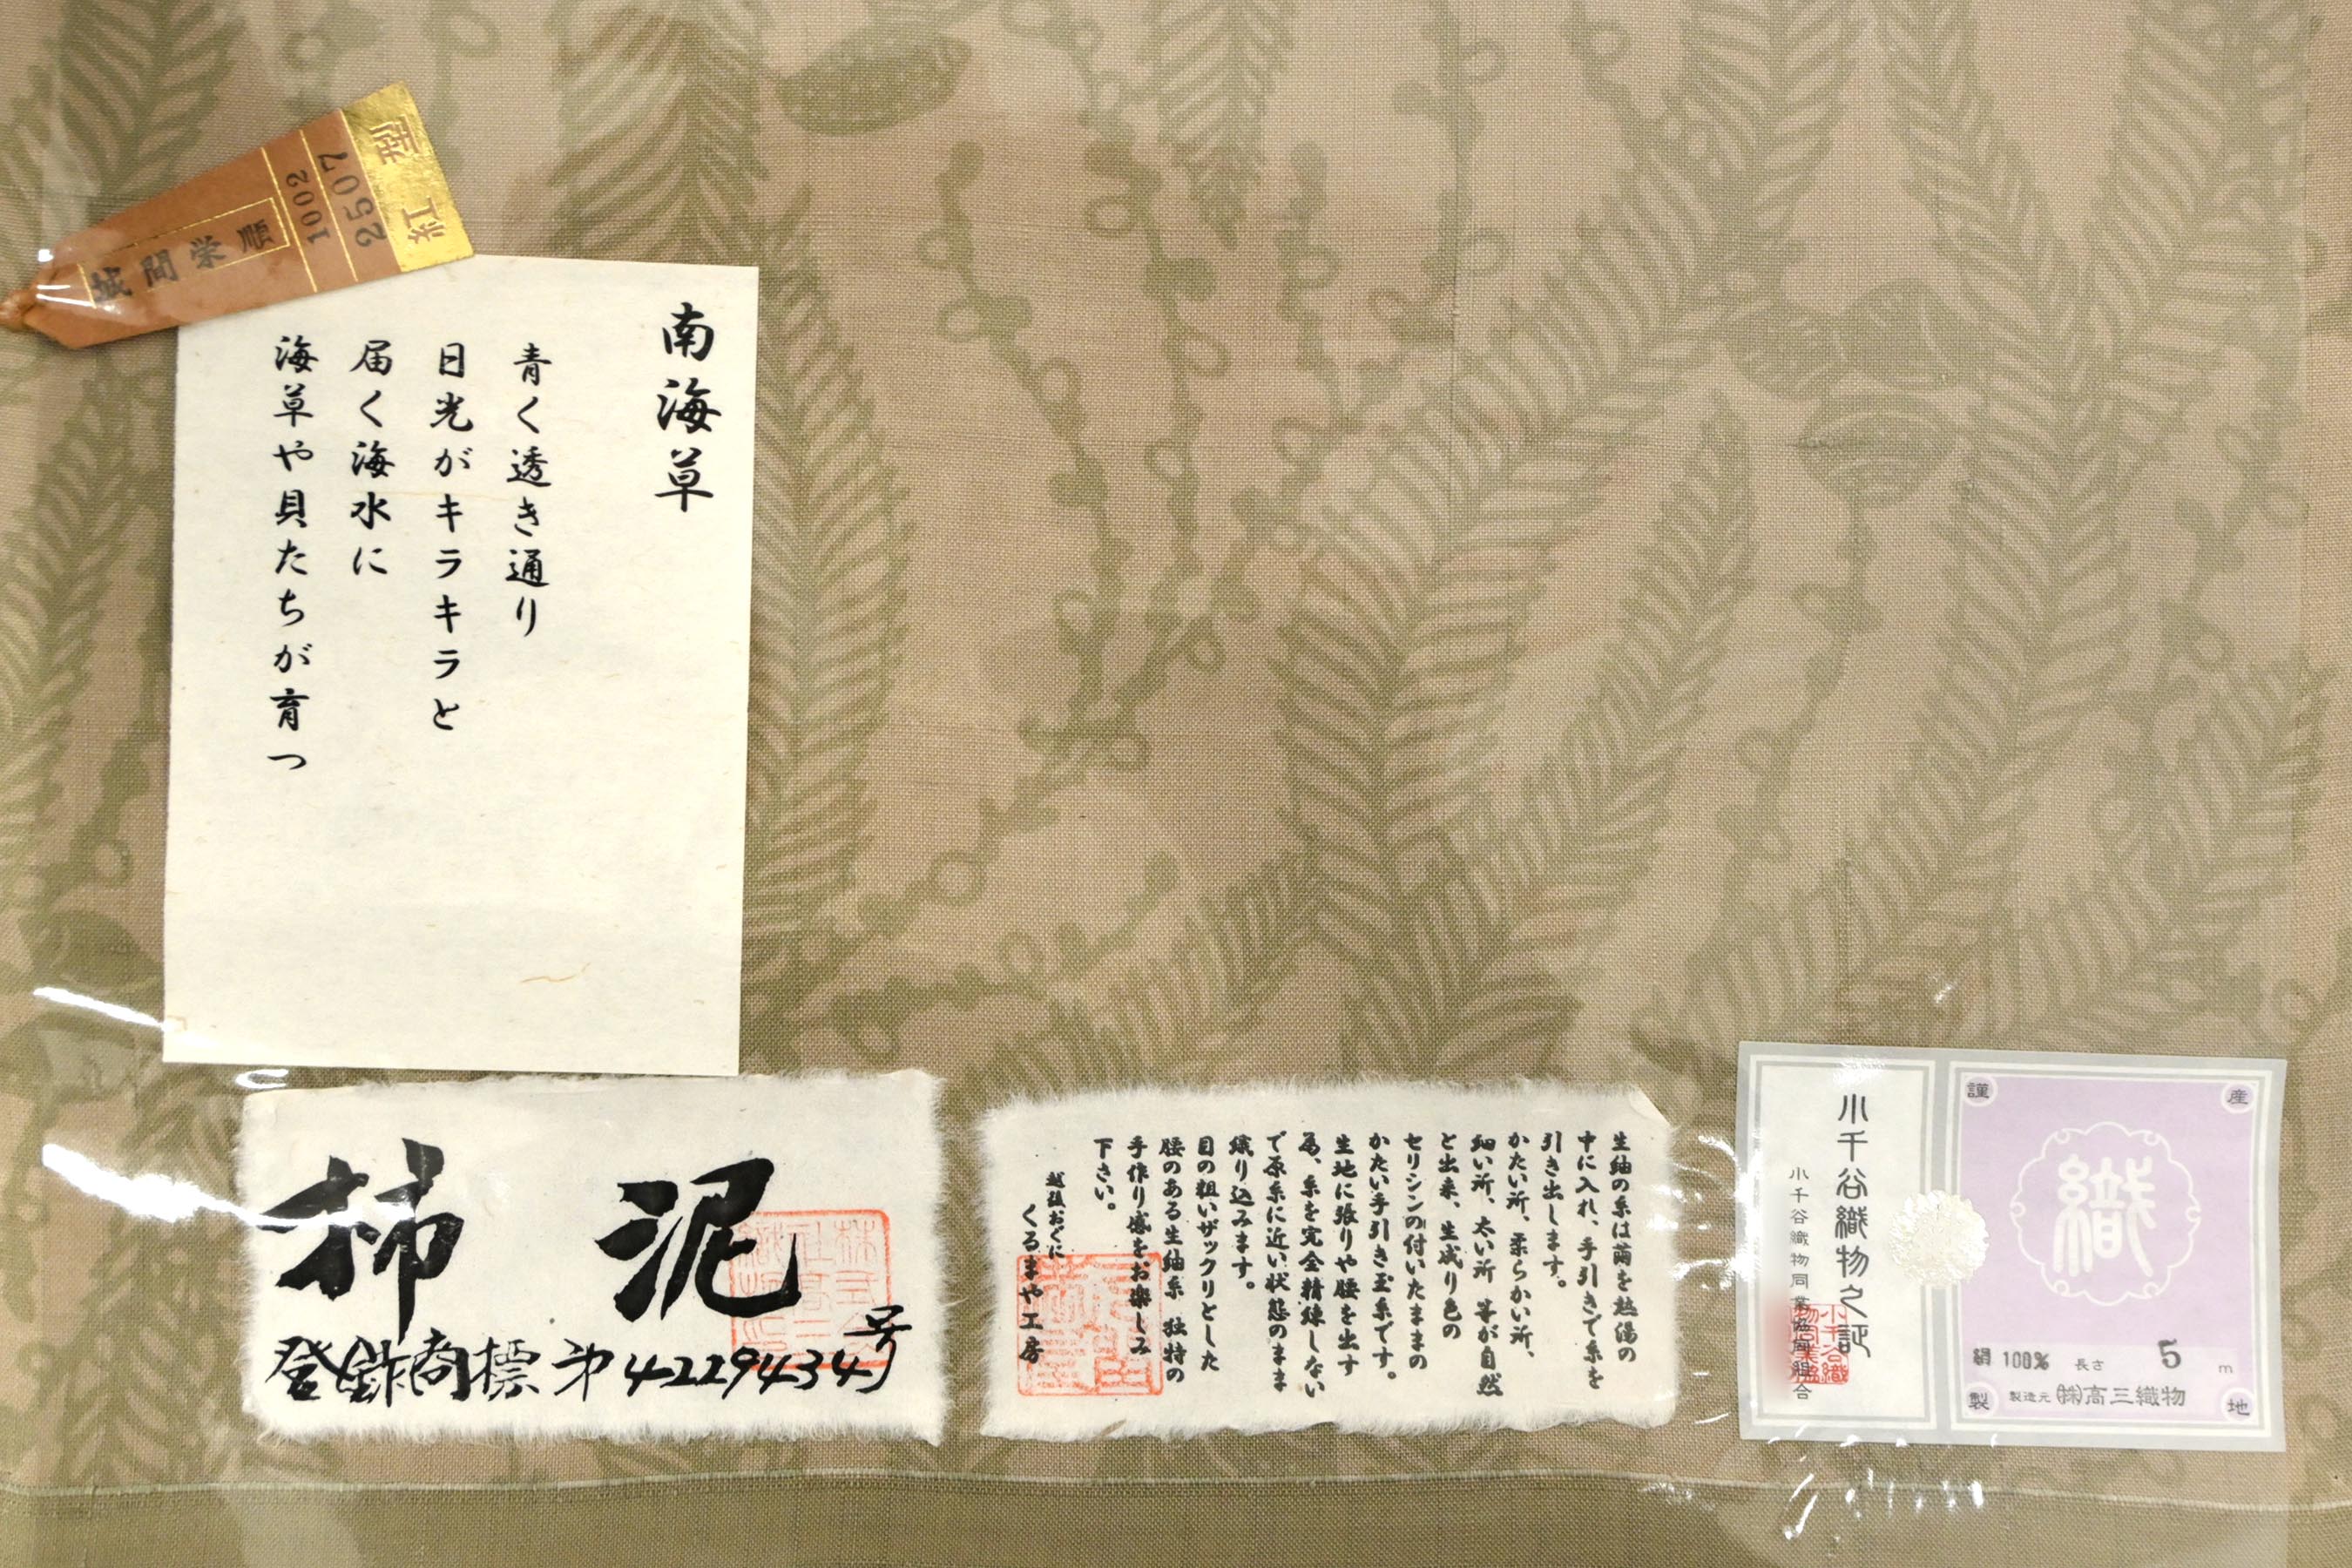 城間栄順
1002
2507
紅工
南海草
青く透き通り
日光がキラキラと
届く海水に
海草や貝たちが育つ
柿泥
登録商標第4229434号
生紬の糸は繭を熱湯の
中に入れ、手引きで糸を
引き出します。
かたい所、柔らかい所、
細い所、太い所 等が自然
と出来、生成り色の
セリシンの付いたままの
かたい手引き玉糸です。
生地に張りや腰を出す
為、糸を完全精練しない
で原糸に近い状態のまま
織り込みます。
目の粗いザックリとした
腰のある生紬糸 独特の
手作り感をお楽しみ
下さい。
越後おぐに
くるまや工房
小千谷織物之証
小千谷織物同業協同組合
謹製
産地
織
絹 100% 長さ 5 m
製造元 ㈱高三織物